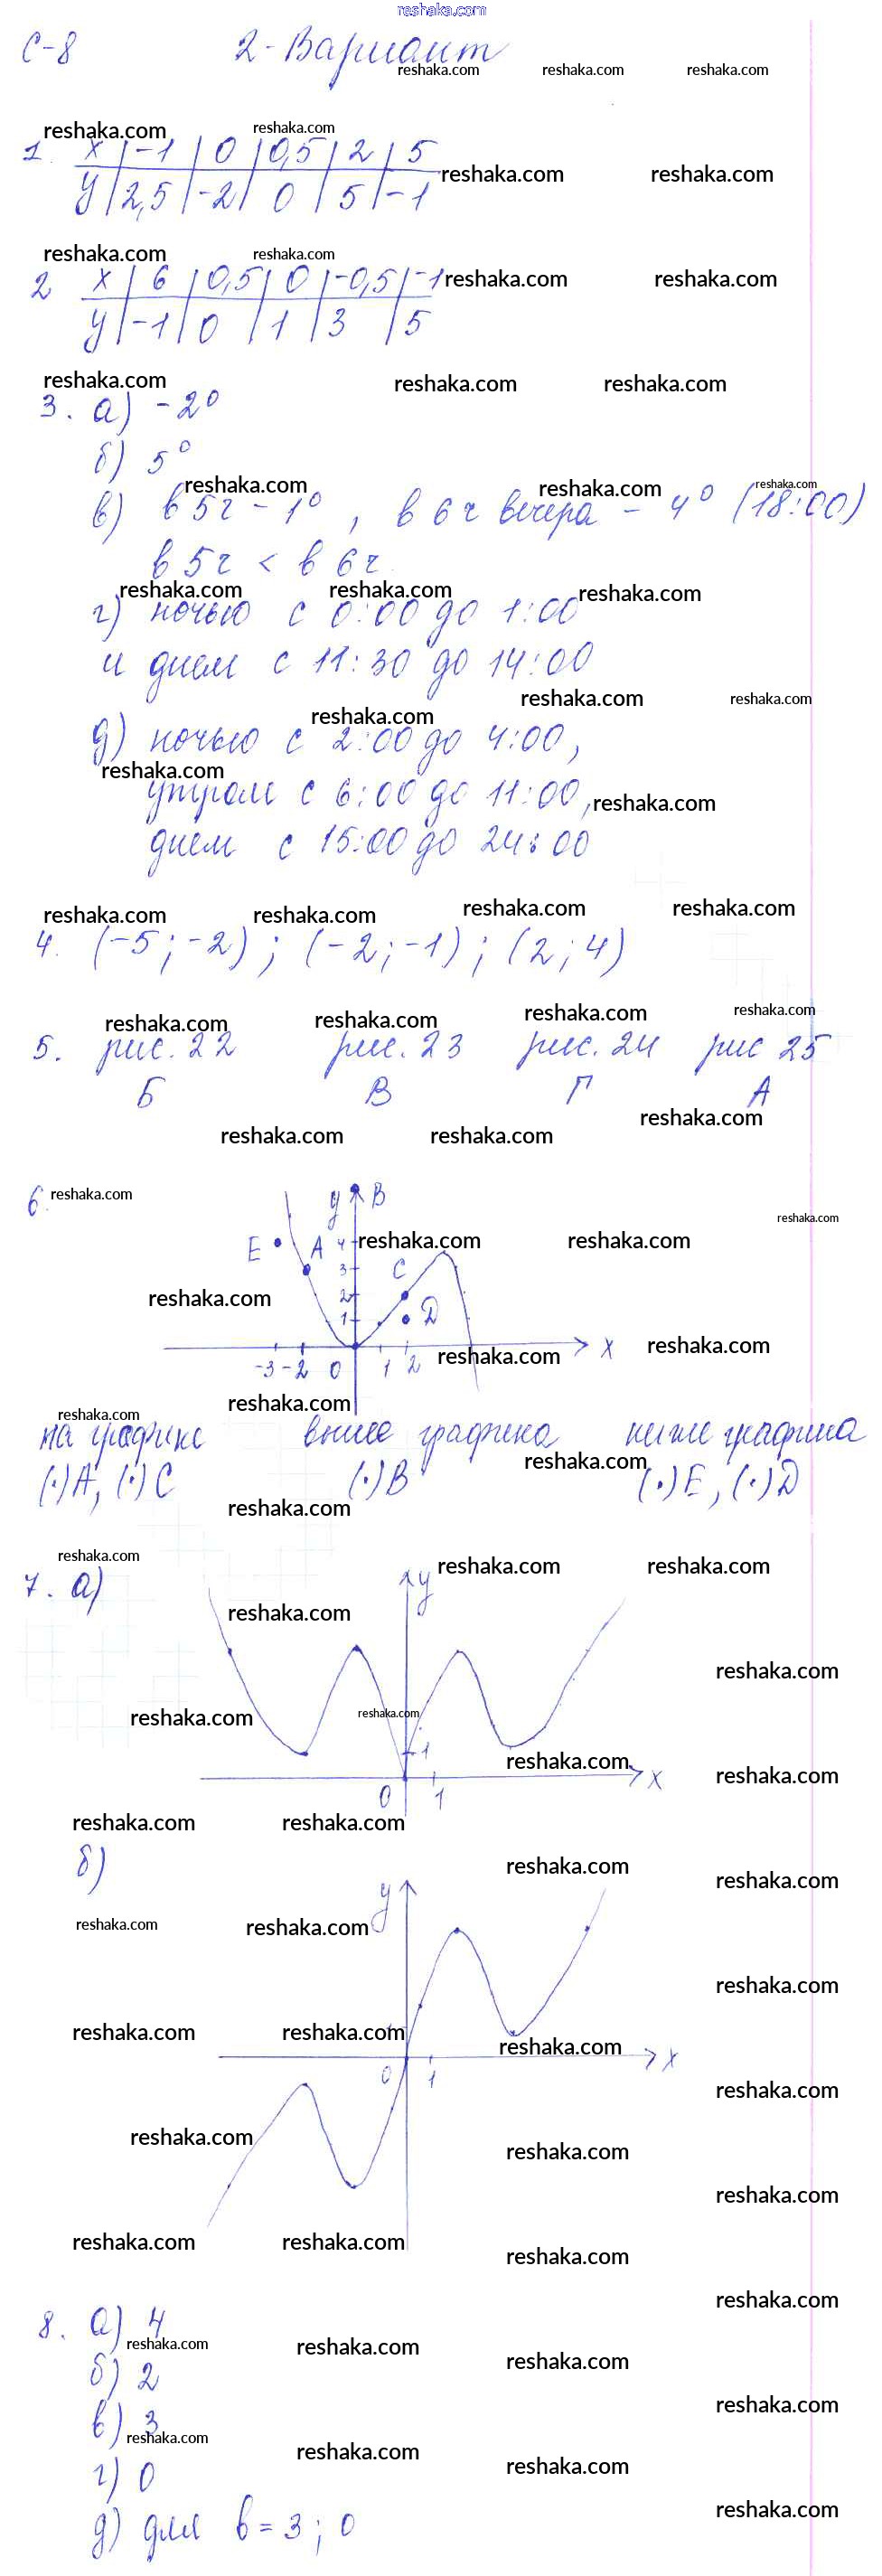 reshaka.com
С-8 2-Вариант
reshaka.com reshaka.com reshaka.com
reshaka.com reshaka.com
1. x | -1 | 0 | 0,5 | 2 | 5
reshaka.com reshaka.com
y | 2,5 | -2 | 0 | 5 | -1
reshaka.com reshaka.com
2 x | 6 | 0,5 | 0 | -0,5 | -1
reshaka.com reshaka.com
y | -1 | 0 | 1 | 3 | 5
reshaka.com reshaka.com reshaka.com
3. а) -2°
б) 5°
reshaka.com reshaka.com reshaka.com
в) в 5 г - 1°, в 6 г вечера - 4° (18:00)
в 5 г < в 6 г
reshaka.com reshaka.com reshaka.com
г) ночью с 0:00 до 1:00
и днем с 11:30 до 14:00
reshaka.com reshaka.com
reshaka.com
д) ночью с 2:00 до 4:00,
reshaka.com
утром с 6:00 до 11:00,
reshaka.com
днем с 15:00 до 24:00
reshaka.com reshaka.com reshaka.com reshaka.com
4. (-5; -2); (-2; -1); (2; 4)
reshaka.com reshaka.com reshaka.com reshaka.com
5. рис. 22 рис. 23 рис. 24 рис 25
Б В Г А
reshaka.com
reshaka.com reshaka.com
6. reshaka.com
y B
reshaka.com
E A 4 reshaka.com reshaka.com
3 C
reshaka.com
2
1 D
x reshaka.com
-3 -2 0 1 2 reshaka.com
reshaka.com
reshaka.com
на графике выше графика ниже графика
reshaka.com
(·)A, (·)C (·)B (·)E, (·)D
reshaka.com
reshaka.com reshaka.com reshaka.com
7. а) y
reshaka.com
reshaka.com
reshaka.com reshaka.com
1 reshaka.com
x reshaka.com
0 1
reshaka.com reshaka.com
б)
reshaka.com reshaka.com
y
reshaka.com reshaka.com
reshaka.com
reshaka.com reshaka.com reshaka.com
x
0 1
reshaka.com
reshaka.com reshaka.com
reshaka.com
reshaka.com reshaka.com reshaka.com
reshaka.com
8. а) 4
reshaka.com reshaka.com reshaka.com
б) 2
reshaka.com
в) 3
reshaka.com reshaka.com reshaka.com
г) 0
reshaka.com
д) для b = 3; 0